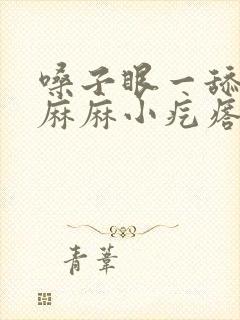 嗓子眼一舔
麻麻小疙瘩
青萋